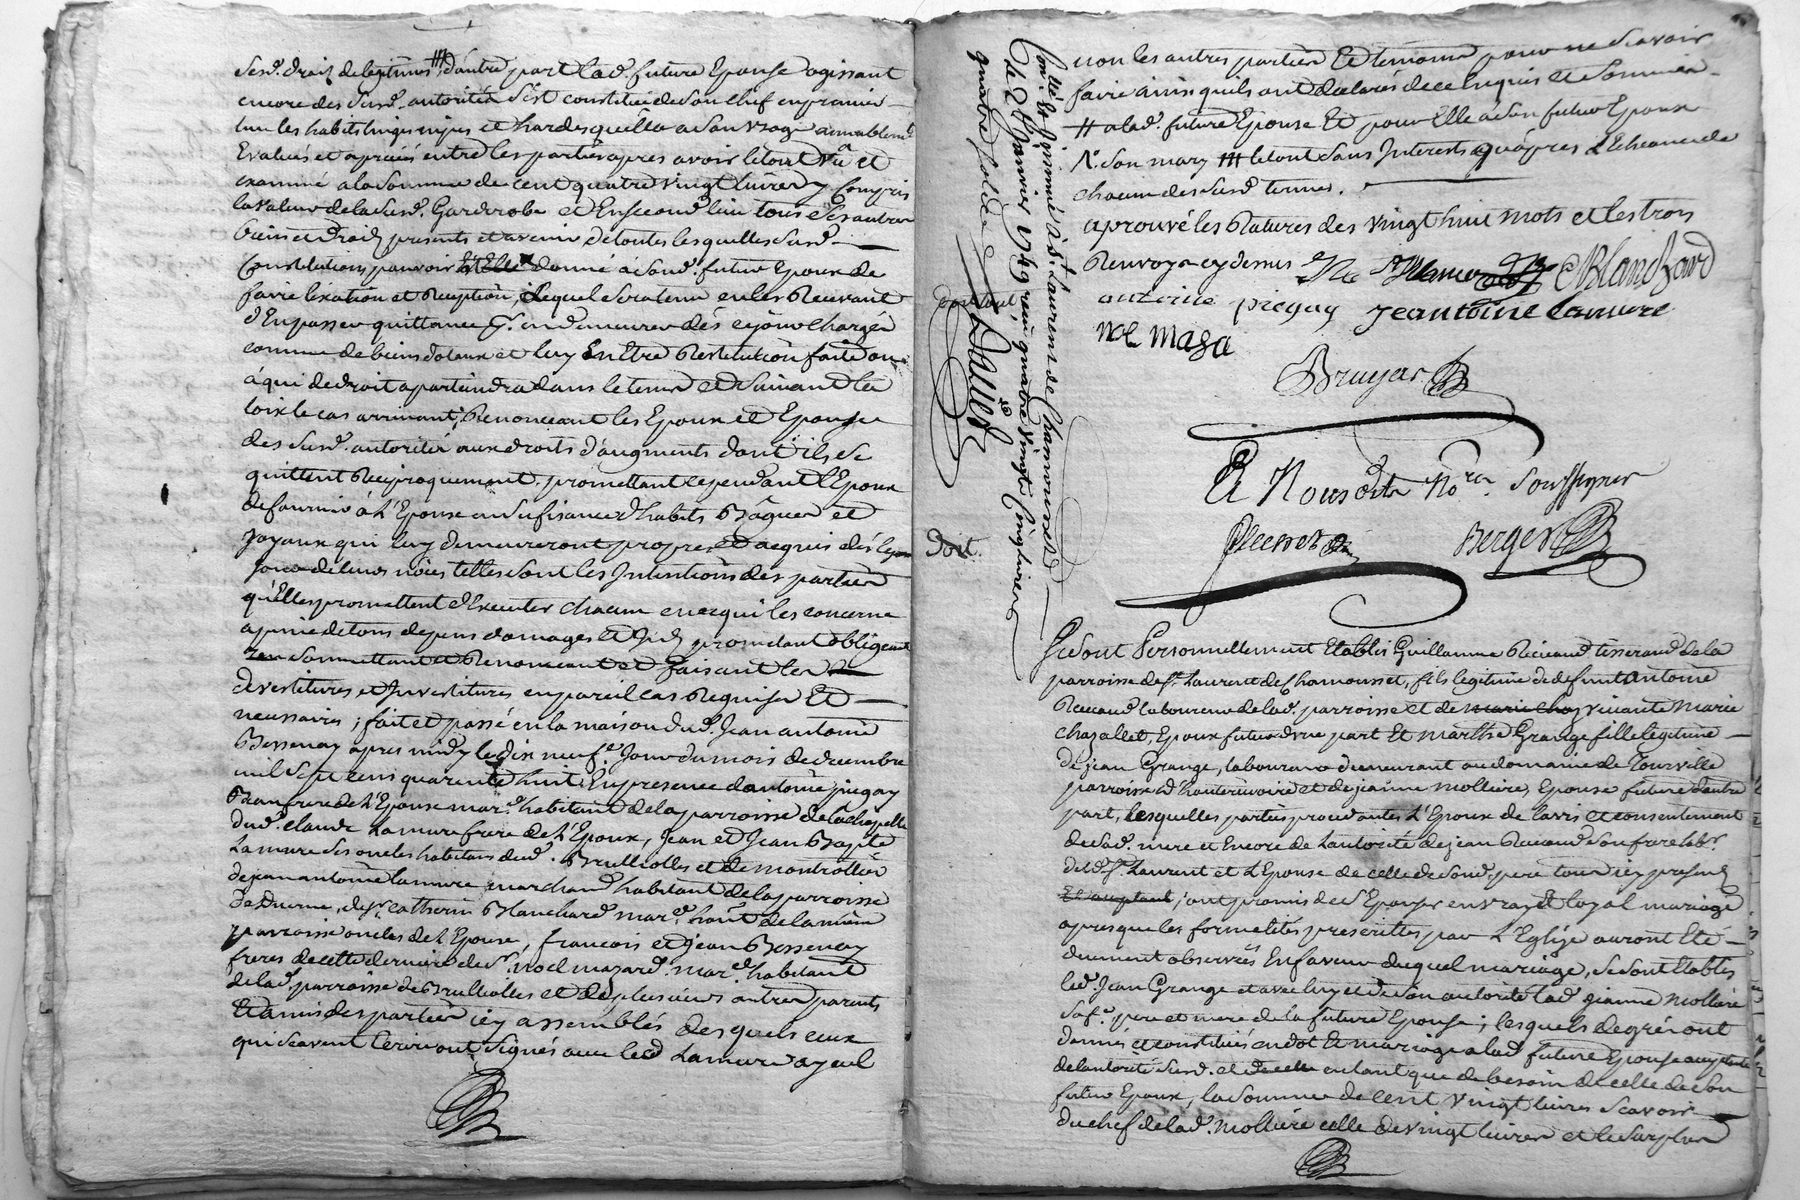 Sesd. droits de legitimes /// d'autre part lad. future Epouse agissant
encore des susd. autorités s'est constituée de son chef en premier
lieu les habits linges nipes et hardes quelle a a son usage amiablemt
Evalués et apréciés entre les parties apres avoir le tout vû et
examiné a la somme de cent quatre vingt livres y Compris
la valeur de la susd. Garderobe et En second lieu tous ses autres
biens et droits presents et avenir de toutes lesquelles susd.
Constitutions pouvoir donné à sond. futur Epoux de
faire l'exaction et Reception, lequel sera tenu en les Recevant
d'En passer quittance en demeurer dés ce jour chargé
comme de biens dotaux et luy En Etre Restitution faite ou
à qui de droit apartiendra dans le tems et suivant les
loix le cas arrivant, Renonceant les Epoux et Epouse
des susd. autorités aux droits d'augments dont ils se
quittent Reciproquement, promettant cependant l'Epoux
de fournir à l'Epouse en sufisance d'habits Bâgues et
Joyaux qui luy demeureront propres et acquis dés le
Jour de leurs nôces telles sont les Intentions des parties
qu'Elles promettent d'Executer chacun en ce qui les concerne
a peine de tous depens domages et promettant obligeant
soumettant et Renonceant et faisant les
devestitures et Investitures en pareil cas Requises Et
necessaires; fait et passé en la maison dud. Jean antoine
Bessenay apres midy le dix neufe. Jour du mois de decembre
mil sept cens quarente huit. En presence d'antoine picgay
Beaufrere de l'Epouse mard. habitant de la parroisse de la chapelle
dud. claude Lamure frere de l'Epoux, Jean et Jean Baptte
Lamure ses oncles habitans de Brullioles et de montrottier
de jean antoine lamure marchand habitant de la parroisse
de Duerne, de Sr. catherin Blanchard mard. habt de la même
parroisse oncles de l'Epouse, francois et jean Bessenay
freres de cette derniere de Sr. noel mazard. mard. habitant
de lad. parroisse de Brullioles et de plusieurs autres parents
Et amis des parties icy assemblés desquels ceux
qui scavent Ecrire ont signés avec led Lamure ayeul
non les autres parties Et temoins pour ne scavoir
faire ainsi quils ont declarés de ce Enquis et sommés
// a lad. future Epouse Et pour Elle à son futur Epoux
son mary /// le tout sans Interests qu'apres l'Echeance de
chacun des susd. termes.
aprouvé les Ratures des vingt huit mots et les trois
Renvoys cy dessus
C Blanchard
antoine picgay jeantoine lamure
noel maza
Bruyas
Et Nous dits Nores. soussignés
Berger
Conllé. Et Insinué à St. Laurent de Chamousset
Le 2 Janvier 1749 reçu quatre vingt Cinq livres
quatre sols
Doit.
Ici sont Personnellement Etablis Guillaume Recuand tisserand de la
parroisse de St. Laurent de Chamousset, fils legitime de defunt antoine
Recuand laboureur de lad. parroisse et de marie chaz vivante Marie
chazallet, Epoux futur d'une part Et marthe Grange fille legitime
de jean Grange, laboureur demeurant au domaine de Tourville
parroisse d'hauterivoire et de jeanne molliere, Epouse future d'autre
part, lesquelles parties procedantes l'Epoux de l'avis et consentement
de sad. mere et Encore de l'autorité de jean Recuand son frere labr.
dud. St. Laurent et l'Epouse de celle de sond. pere tous icy presents
Et acceptant, ont promis de s'Epouser en vray Et loyal mariage
apres que les formalités prescrittes par l'Eglise auront Eté
duement observées En faveur duquel mariage, se sont Etablis
led. Jean Grange et avec luy et de son autorité lad. jeanne molliere
sa fe. pere et mere de la future Epouse; lesquels de gré ont
donnés et constitués en dot Et mariage a lad future Epouse acceptante
de l'autorité susd. et de celle en tant que de besoin de celle de son
futur Epoux, la somme de cent vingt livres scavoir
du chef de lad. Molliere celle de vingt livres et le surplus